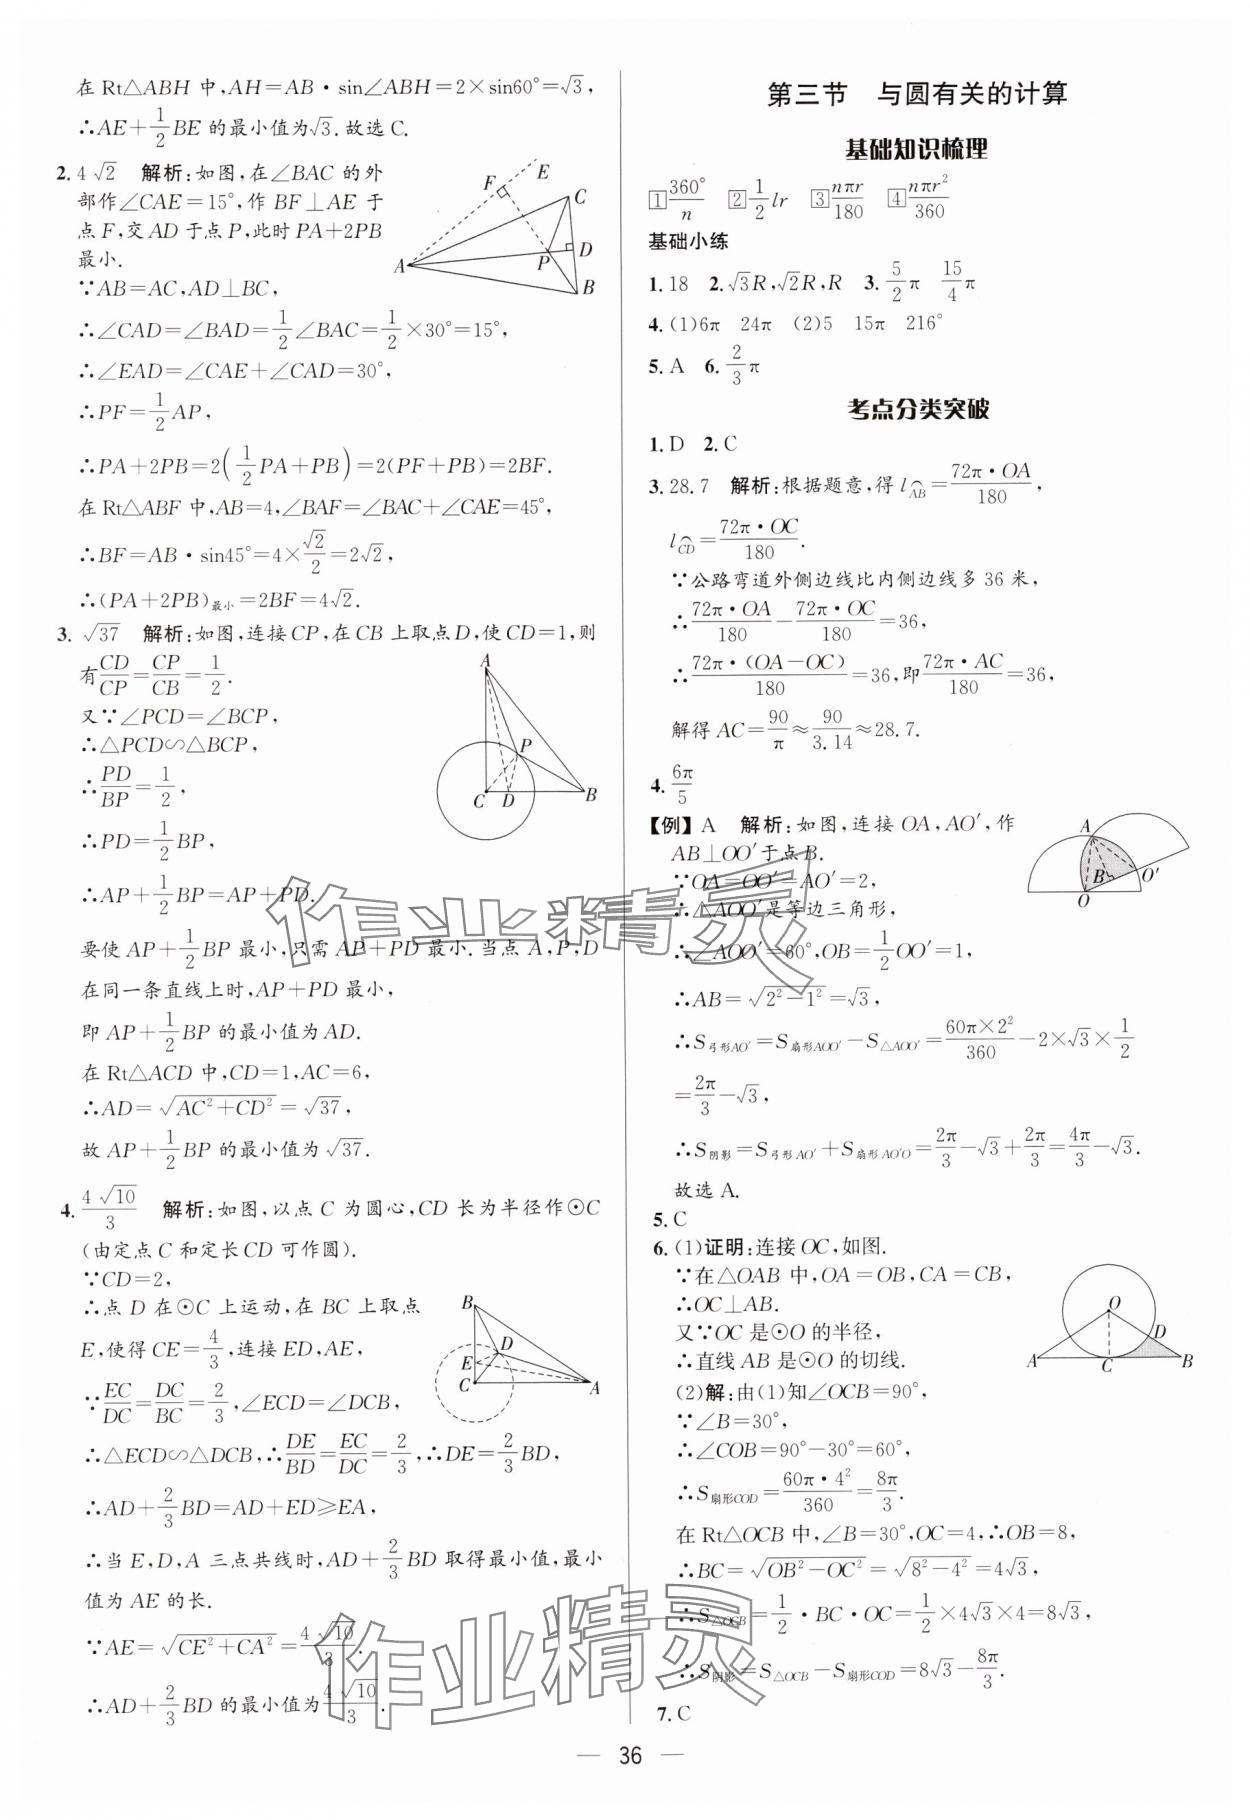 在Rt△ABH中,AH=AB·sin∠ABH=2×sin60°=√3,
∴AE+1/2BE的最小值为√3.故选C.
2. 4√2 解析:如图,在∠BAC的外
部作∠CAE=15°,作BF⊥AE于
点F,交AD于点P,此时PA+2PB
最小.
∵AB=AC,AD⊥BC,
∴∠CAD=∠BAD=1/2∠BAC=1/2×30°=15°,
∴∠EAD=∠CAE+∠CAD=30°,
∴PF=1/2AP,
∴PA+2PB=2(1/2PA+PB)=2(PF+PB)=2BF.
在Rt△ABF中,AB=4,∠BAF=∠BAC+∠CAE=45°,
∴BF=AB·sin45°=4×√2/2=2√2,
∴(PA+2PB)最小=2BF=4√2.
E
F
C
D
A
P
B
3. √37 解析:如图,连接CP,在CB上取点D,使CD=1,则
有CD/CP=CP/CB=1/2.
又∵∠PCD=∠BCP,
∴△PCD∽△BCP,
∴PD/BP=1/2,
∴PD=1/2BP,
∴AP+1/2BP=AP+PD.
要使AP+1/2BP最小,只需AP+PD最小.当点A,P,D
在同一条直线上时,AP+PD最小,
即AP+1/2BP的最小值为AD.
在Rt△ACD中,CD=1,AC=6,
∴AD=√(AC²+CD²)=√37,
故AP+1/2BP的最小值为√37.
A
P
C D B
4. 4√10/3 解析:如图,以点C为圆心,CD长为半径作⊙C
(由定点C和定长CD可作圆).
∵CD=2,
∴点D在⊙C上运动,在BC上取点
E,使得CE=4/3,连接ED,AE,
∵EC/DC=DC/BC=2/3,∠ECD=∠DCB,
∴△ECD∽△DCB,∴DE/BD=EC/DC=2/3,∴DE=2/3BD,
∴AD+2/3BD=AD+ED≥EA,
∴当E,D,A三点共线时,AD+2/3BD取得最小值,最小
值为AE的长.
∵AE=√(CE²+CA²)=4√10/3,
∴AD+2/3BD的最小值为4√10/3.
B
D
E
C
A
第三节 与圆有关的计算
基础知识梳理
1 360°/n 2 1/2lr 3 nπr/180 4 nπr²/360
基础小练
1. 18 2. √3R,√2R,R 3. 5/2π 15/4π
4. (1)6π 24π (2)5 15π 216°
5. A 6. 2/3π
考点分类突破
1. D 2. C
3. 28.7 解析:根据题意,得l⌒AB=72π·OA/180,
l⌒CD=72π·OC/180.
∵公路弯道外侧边线比内侧边线多36米,
∴72π·OA/180-72π·OC/180=36,
∴72π·(OA-OC)/180=36,即72π·AC/180=36,
解得AC=90/π≈90/3.14≈28.7.
4. 6π/5
【例】A 解析:如图,连接OA,AO′,作
AB⊥OO′于点B.
∵OA=OO′=AO′=2,
∴△AOO′是等边三角形,
∴∠AOO′=60°,OB=1/2OO′=1,
∴AB=√(2²-1²)=√3,
∴S弓形AO′=S扇形AOO′-S△AOO′=60π×2²/360-2×√3×1/2
=2π/3-√3,
∴S阴影=S弓形AO′+S扇形AO′O=2π/3-√3+2π/3=4π/3-√3.
故选A.
A
B
O′
O
5. C
6. (1)证明:连接OC,如图.
∵在△OAB中,OA=OB,CA=CB,
∴OC⊥AB.
又∵OC是⊙O的半径,
∴直线AB是⊙O的切线.
(2)解:由(1)知∠OCB=90°,
∵∠B=30°,
∴∠COB=90°-30°=60°,
∴S扇形COD=60π·4²/360=8π/3.
在Rt△OCB中,∠B=30°,OC=4,∴OB=8,
∴BC=√(OB²-OC²)=√(8²-4²)=4√3,
∴S△OCB=1/2·BC·OC=1/2×4√3×4=8√3,
∴S阴影=S△OCB-S扇形COD=8√3-8π/3.
O
D
A C B
7. C
作业精灵
作业精灵
36